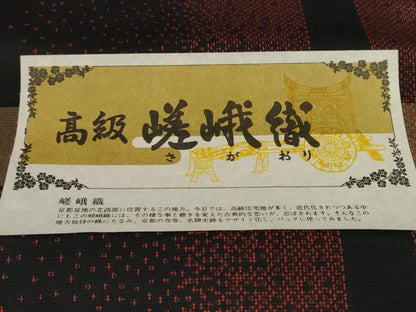 高級 嵯峨織
さがおり
嵯峨織
京都盆地の北西部に位置するこの地方。今日では、高級住宅地が多く、近代化されつつある中
にもこの嵯峨織には、その様な事と趣きを変えた古典的な思いが、忍ばされます。そんなこの
地方独特の織にちなみ、京都の寺等、名勝史跡をデザイン化し、バックに使ってみました。